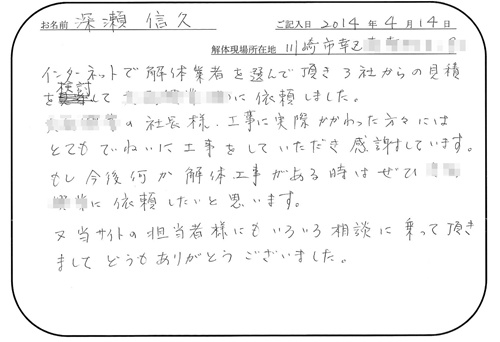 お名前 深瀬 信久 ご記入日 2014 年 4 月 14 日
解体現場所在地 川崎市幸区
インターネットで解体業者を選んで頂き3社からの見積
を検討して に依頼しました。
の社長様、工事に実際かかわった方々には
とてもていねいに工事をしていただき感謝しています。
もし今後何か解体工事がある時はぜひ
に依頼したいと思います。
又当サイトの担当者様にもいろいろ相談に乗って頂き
ましてどうもありがとうございました。